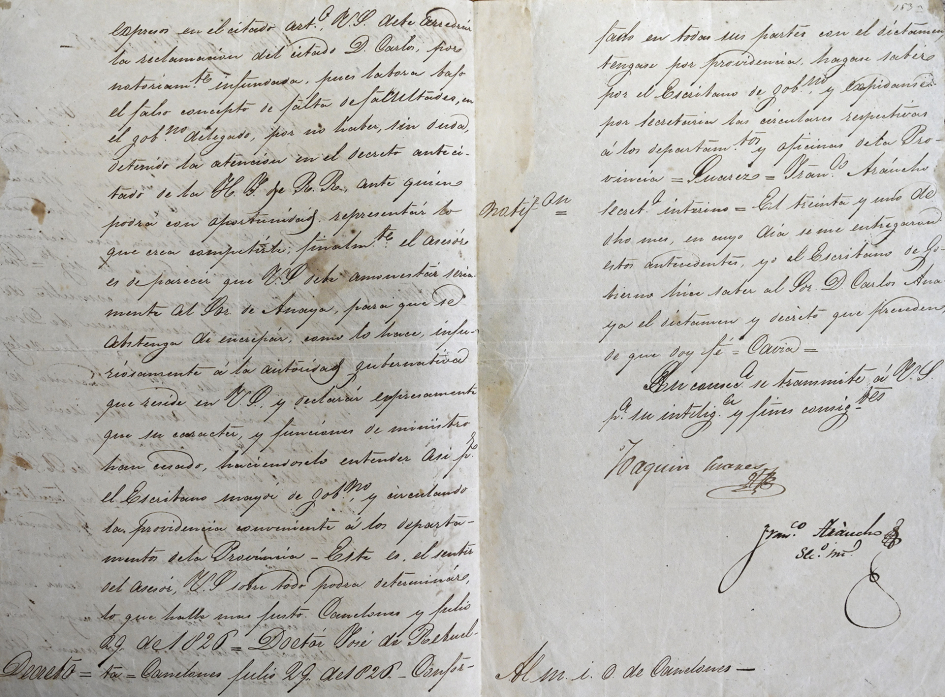 expresos en el citado art.º V.S. debe
la reclamacion del citado D. Carlos, por
notoriam.te infundada, pues labora bajo
el falso concepto de falta de facultades, en
el gob.no delegado, por no haber, sin duda,
detenido la atencion en el decreto anteci-
tado de la H. J. de R.R., ante quien
podrá con oportunidad, representar lo
que crea competirle; finalm.te el asesor
es de parecer que V.S. debe amonestar seria
mente al Sor de Anaya, para que se
abstenga de increpar, como lo hace, inju-
riosamente á la autoridad gubernativa
que reside en V.S. y declarar expresamente
que su caracter, y funciones de ministro
han cesado, haciendoselo entender asi p.r
el Escribano mayor de gob.no y circulando
la providencia conveniente á los departa-
mentos de la Provincia - Este es el sentir
del asesor, V.S. sobre todo podra determinar,
lo que halle mas justo Canelones y julio
29 de 1826 = Doctor José de Rebuel-
Decreto = ta = Canelones julio 29 de 1826 - Confor-
153
mado en todas sus partes con el dictamen
tengase por providencia, hagase saber
por el Escribano de gob.no y expidanse
por secretaria las circulares respectivas
á los departam.tos y oficinas de la Pro-
vincia = Suarez = Fran.co Araucho
notif.on = secret.º interino = El treinta y uno de
dho mes, en cuyo dia se me entregaron
estos antecedentes, yo el Escribano de Go-
bierno hice saber al Sor. D. Carlos Ana
ya el dictamen y decreto que preceden,
de que doy fé = Cavia =
En consec.a se transmite á V.S.
p.a su intelig.cia y fines consig.tes
Joaquin Suarez
Fran.co Araucho
Sec.º int.º
Al m. i. C. de Canelones -